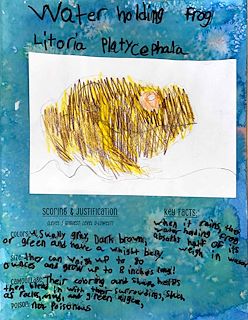 Water holding Frog
Litoria Platycephala
SCORING & JUSTIFICATION
Colors: usually Dark brown,
or green and have a whight belly
Size: they can weigh up to 80
ounces and grow up to 8 inches long!
Camouflage: Their coloring and shape helps
them blend in with their surroundings, such
as rocks, mud, and green algee.
Poison: not Poisonous
KEY FACTS:
when it rains the
water holding frog
absorbs half of its
weigh in water